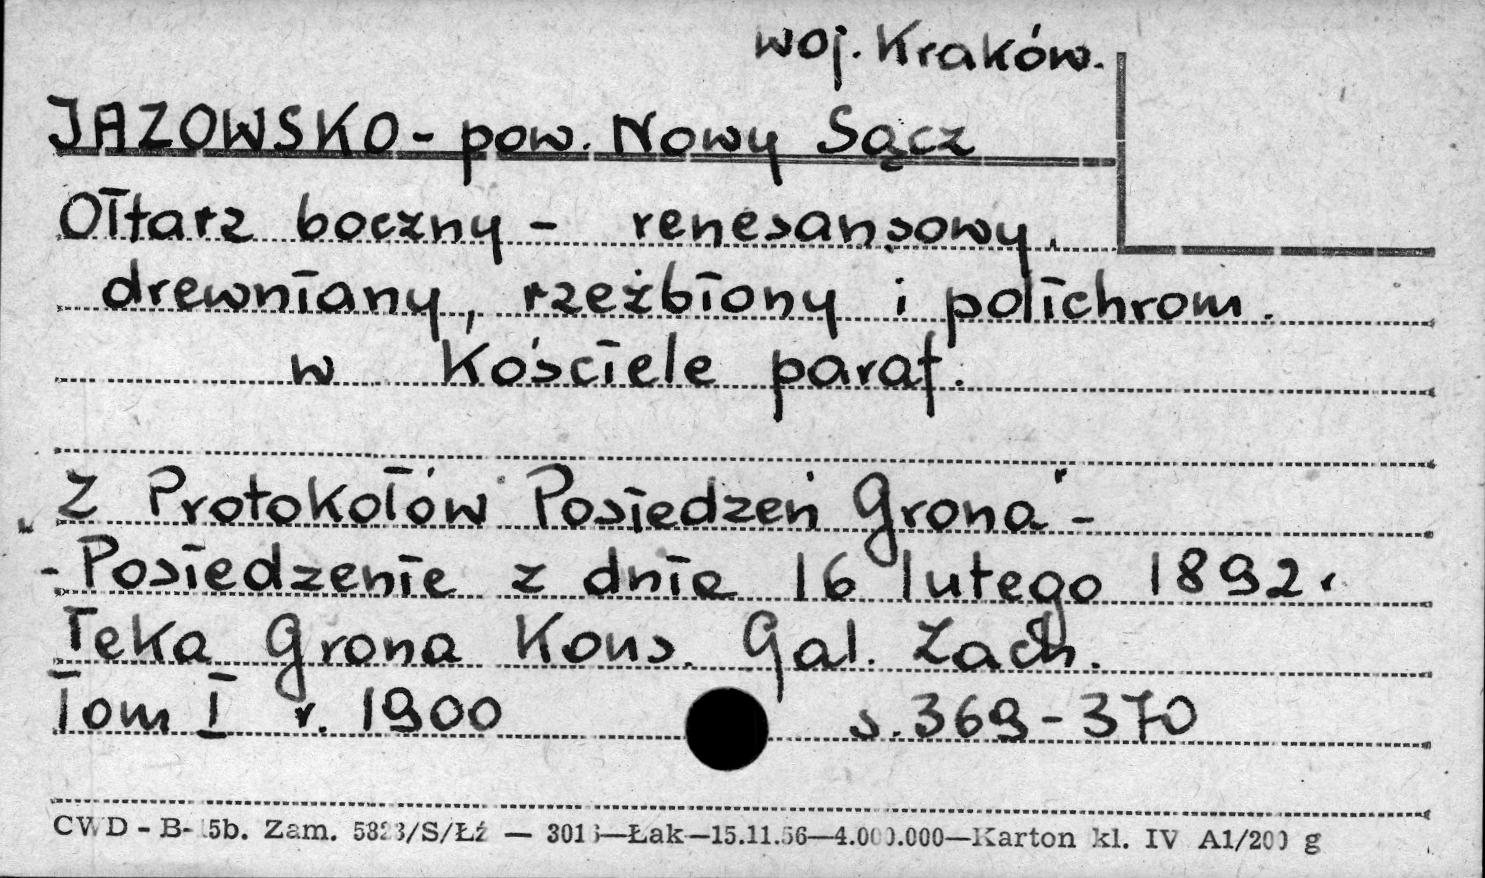 woj. Kraków.
JAZOWSKO - pow. Nowy Sącz
Ołtarz boczny - renesansowy.
drewniany, rzeźbiony i polichrom.
w Kościele paraf.
"Z Protokołów Posiedzeń Grona" -
- Posiedzenie z dnia 16 lutego 1892 r
Teka Grona Kons. Gal. Zach.
Tom I r. 1900 s. 369-370
CWD - B- 5b. Zam. 5823/S/Łź — 3013—Łak—15.11.56—4.000.000—Karton kl. IV A1/200 g